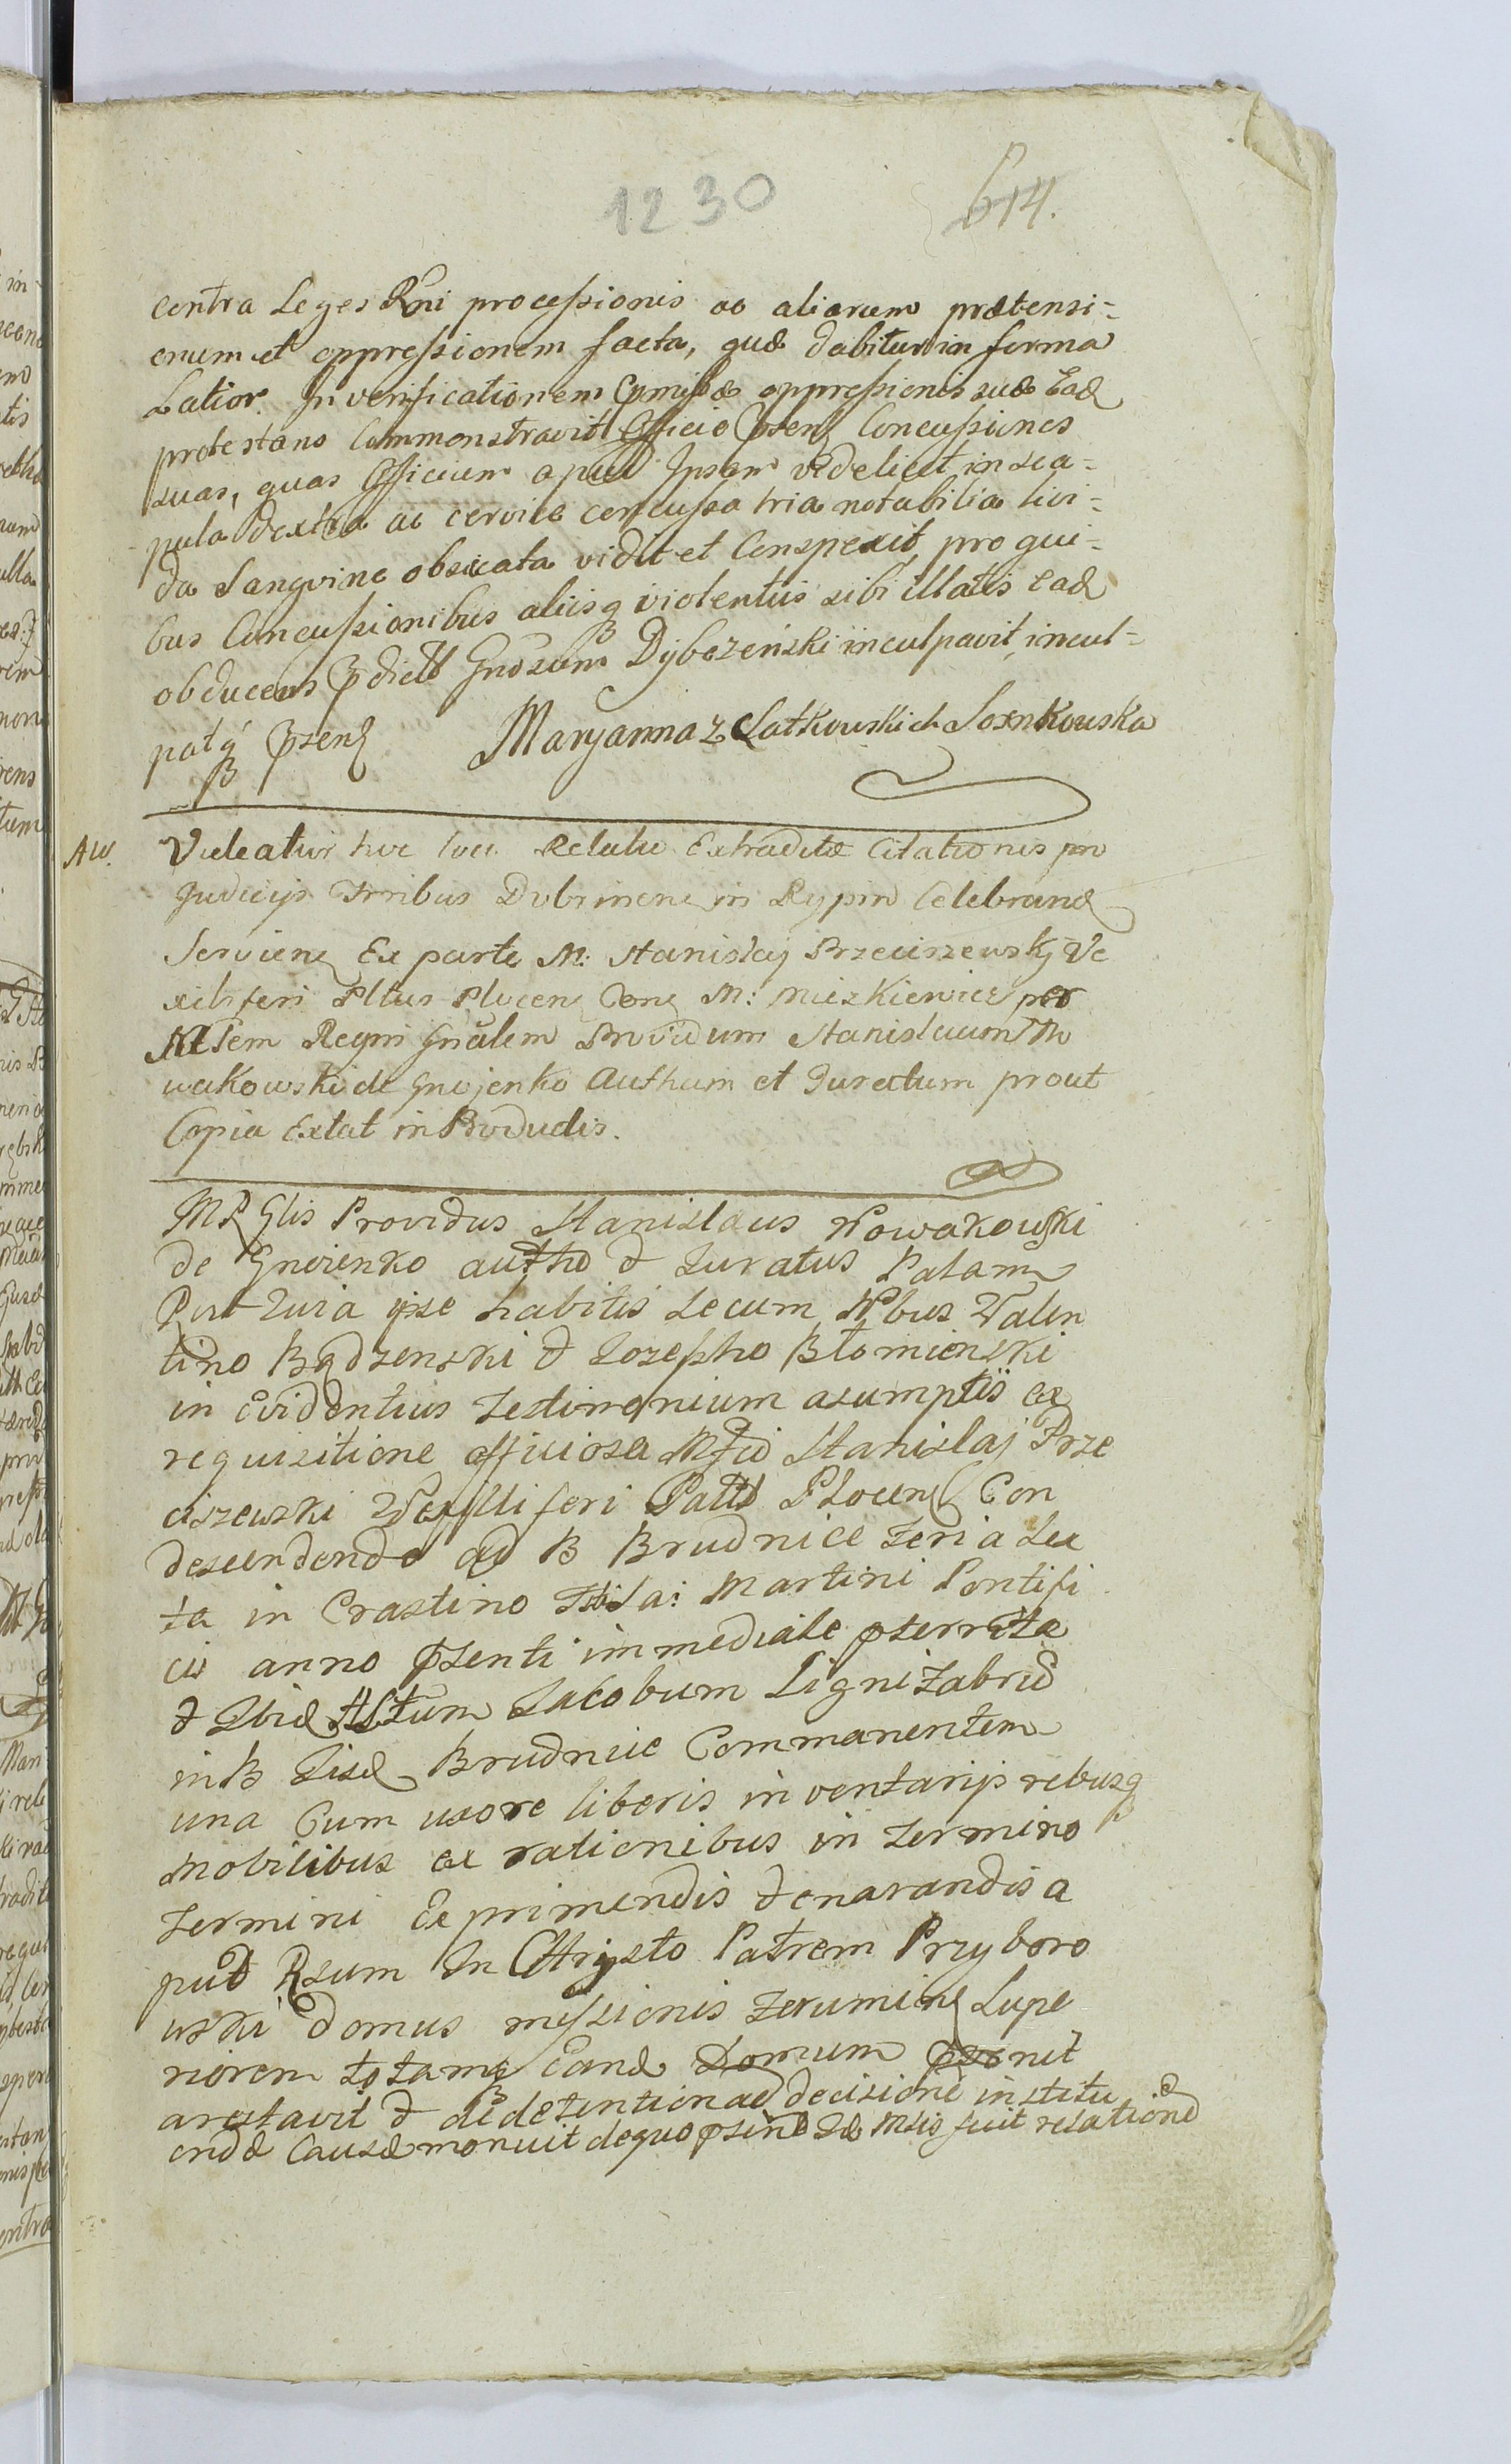 1230 614.
contra Leges Rni processionis ac aliarum prætensi-
onum et oppressionem facta, quæ dabitur in forma
Latior. In verificationem Pmissæ oppressionis suæ Ead
protestans Commonstravit Officio Psen Concussiones
suas, quas Officium apud Ipsam videlicet in sca-
pula dextra ac cervice concussa tria notabilia livi-
da Sangvine obsicata vidit et Conspexit, pro qui-
bus Concussionibus aliisq violentiis sibi illatis Ead
obducens Pdictt Gnosum Dybczeński inculpavit, incul-
patq Psen Maryanna z Latkowskich Sosnkowska
AW. Videatur hic loci Relatio Extraditæ Citationis pro
Judicijs Trribus Dobrinen in Rypin Celebrand
Servien Ex parte M: Stanislaj Przeciszewskj Ve
xiliferi Pltus Plocen Con M: Mieszkiewicz per
Mlem Regni Gnalem Providum Stanislaum No
wakowski de Gnojenko Authum et Juratum prout
Copia Extat in Productis.
MR Glis Providus Stanislaus Nowakowski
de Gnoienko autho & Iuratus Palam
Put Iuia ipse habitis secum Nbus Valen
tino Bądzenski & Iosepho Błomienski
in Evidentius testimonium asumptis ex
requisitione officiosa Mfci Stanislaj Prze
ciszewski Vexilliferi Pattt Plocen Con
descendendo ad B Brudnice Feria sex
ta in Crastino Fti Sa: Martini Pontifi
cis anno Psenti immediate Pterrita
& Ibid Altum Iacobum Lignifabrid
in B Eisd Brudnice Commanentem
una Cum uxore liberis inventarijs rebusq
mobilibus ex rationibus in termino
termini Exprimendis & enarandis a
pud Rsum In Christo Patrem Przyboro
wski domus missionis Zerumien Supe
riorem totamq Eand Domum Psonit
arestavit & de detention ad decisione institu
endæ Causæ monuit de quo Psine Sæ Msio fuit relatione